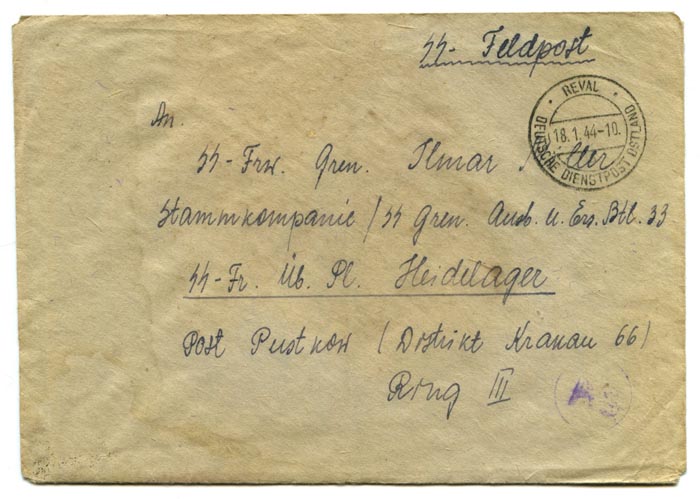 SS- Feldpost
REVAL
18.1.44-10.
DEUTSCHE DIENSTPOST OSTLAND
An.
SS-Frw. Gren. Ilmar
Stammkompanie/SS Gren. Ausb. u. Ers. Btl. 33
SS-Fr. Üb. Pl. Heidelager
Post Pustkow (Distrikt Kranau 66)
Ring III